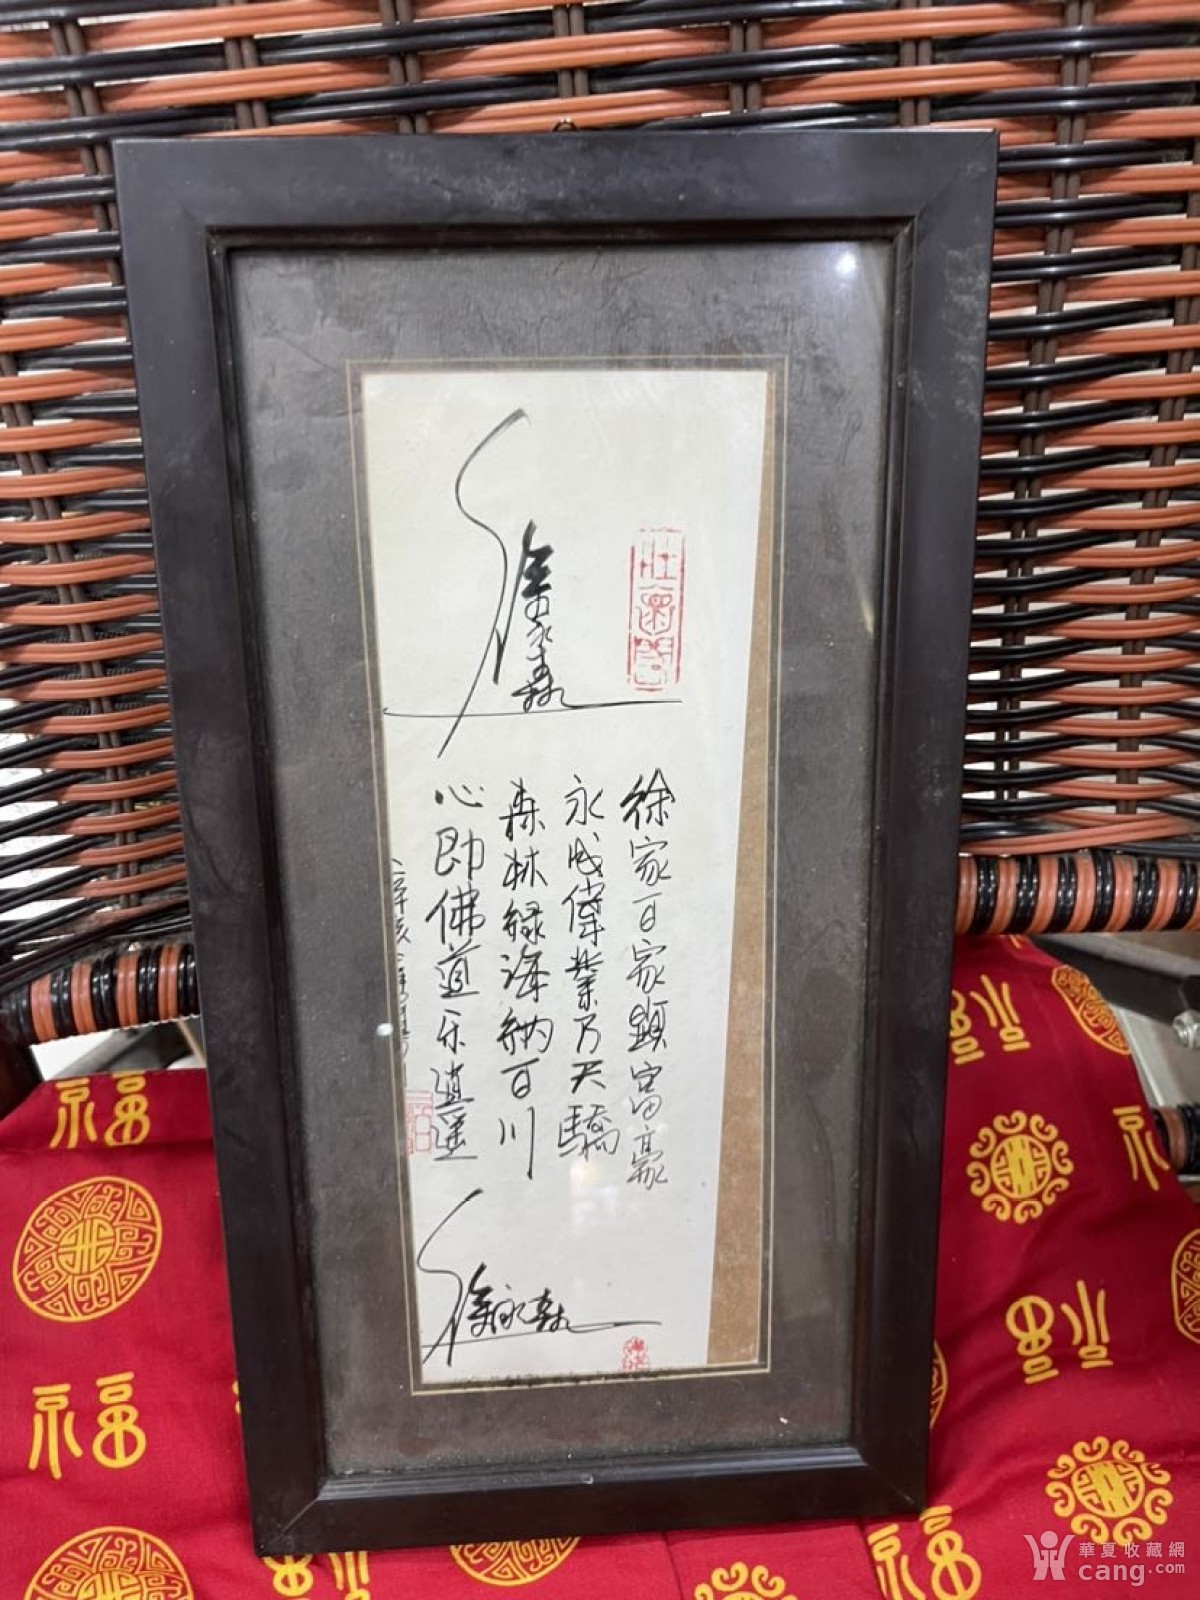 徐永森
徐家百家顯富豪
永成偉業乃天驕
森林綠海納百川
心即佛道乐逍遥
徐永森
福
華夏收藏網
cang.com